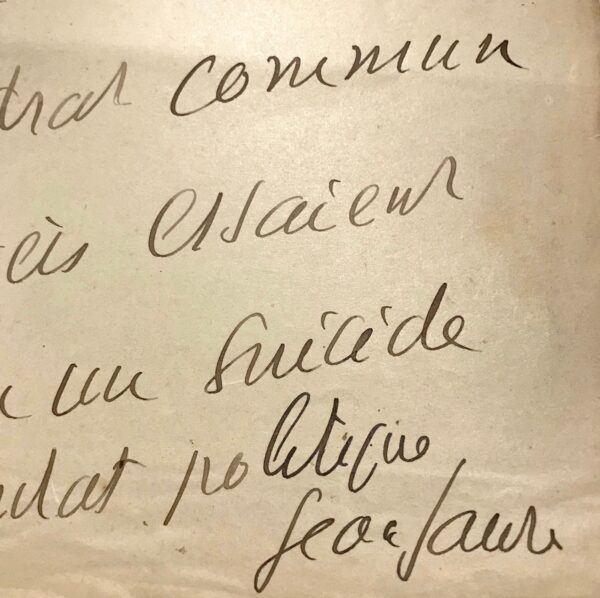 trat commun
essaient
un suicide
politique
Jean Jaurès